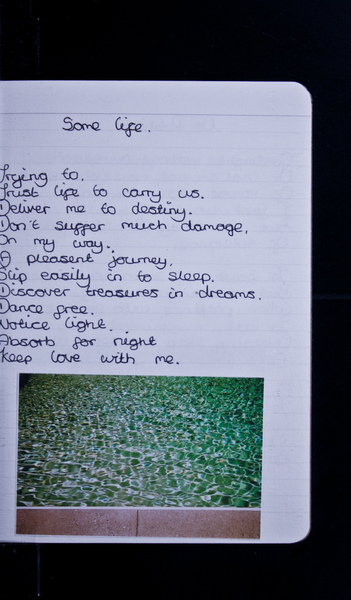 Some life.
Trying to.
Trust life to carry us.
Deliver me to destiny.
Don't suffer much damage,
On my way.
A pleasent journey,
Slip easily in to sleep.
Discover treasures in dreams.
Dance free.
Notice light.
Absorb for night
Keep love with me.